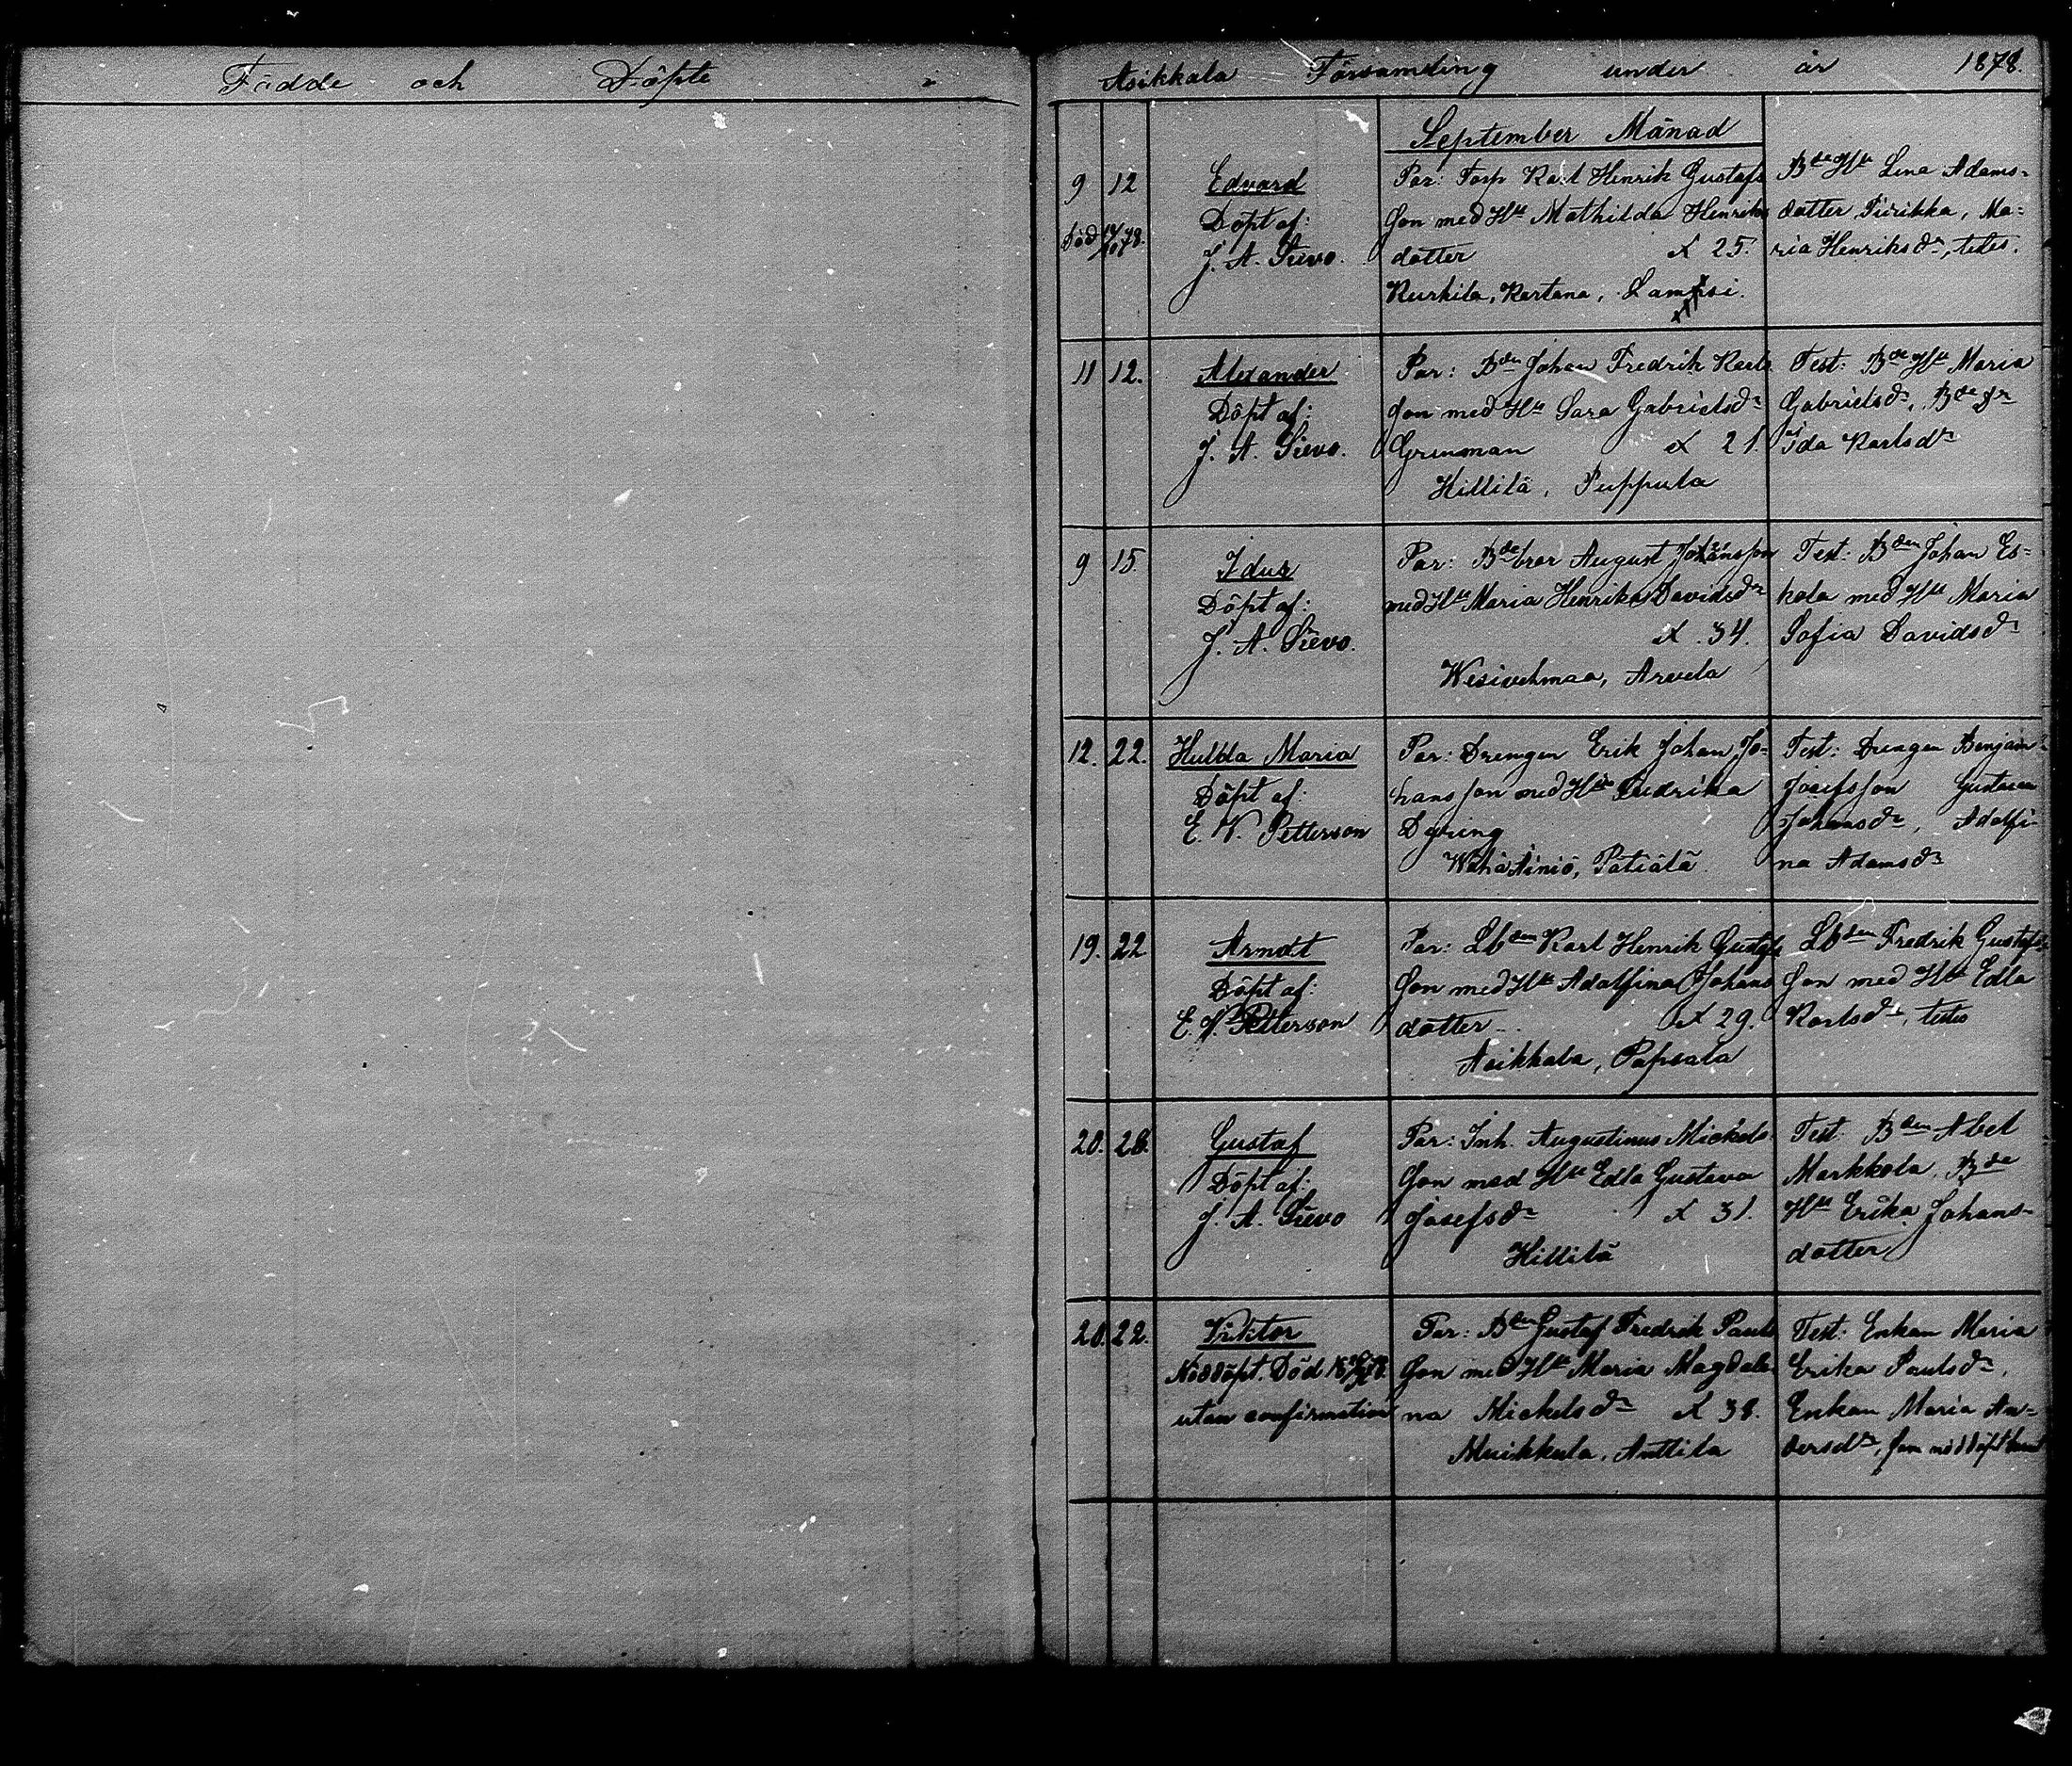 Födde och Döpte i Asikkala Församling under år 1878.
September Månad
9 12 Edvard
Död 14/10 78.
Döpt af:
J. A. Sievo.
Par: Torp Karl Henrik Gustafs
son med Hu Mathilda Henriks
dotter x 25.
Kurhila, Kartano, Lampsi.
Bde Hu Lena Adams=
dotter Piirikka, Ma=
ria Henriksdr, testes.
11 12. Alexander
Döpt af:
J. A. Sievo.
Par: Bden Johan Fredrik Karls
son med Hu Sara Gabrielsdr
Grenman x 21.
Hillilä, Puppula
Test: Bde Hu Maria
Gabrielsdr, Bde dr
Ida Karlsdr
9 15. Idus
Döpt af:
J. A. Sievo.
Par: Bdebror August Johansson
med Hu Maria Henrika Davidsdr
x 34.
Wesivehmaa, Arvela
Test: Bden Johan Es=
kola med Hu Maria
Sofia Davidsdr
12. 22. Hulda Maria
Döpt af:
E. W. Petterson
Par: Drengen Erik Johan Jo=
hansson med Hu Fredrika
Dyring
Wähä Äiniö, Pätiälä
Test: Drengen Benjam
Josefsson Gustava
Johansdr, Adolfi-
na Adamsdr
19. 22 Arndt
Döpt af:
E. W. Petterson
Par: Lbden Karl Henrik Gustafs
son med Hu Adolfina Johans
dotter x 29.
Asikkala, Papsala
Lbden Fredrik Gustafs=
son med Hu Edla
Karlsdr, testes
20. 28. Gustaf
Döpt af:
J. A. Sievo
Par: Inh. Augustinus Mickels
son med Hu Edla Gustava
Josefsdr x 31.
Hillilä
Test: Bden Abel
Markkola, Bde
Hu Erika Johans-
dotter
20. 22. Viktor
Nöddöpt. Död
utan confirmation
Par: Bden Gustaf Fredrik Pauls
son med Hu Maria Magdale-
na Mickelsdr x 38.
Muikkula, Anttila
Test: Enkan Maria
Erika Paulsdr,
Enkan Maria An=
dersdr, som nöddöpt barnet